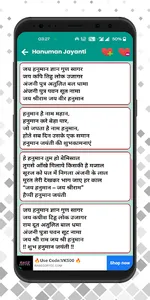 Hanuman Jayanti
जय हनुमान ज्ञान गुण सागर
जय कपि तिहु लोक उजागर
अंजनी पुत्र अतुलित बल धामा
अंजनी पुत्र पवन सूट नामा
जय श्रीराम जय वीर हनुमान
हनुमान है नाम महान,
हनुमान करे बेड़ा पार,
जो जपता है नाम हनुमान,
होते सब दिन उसके एक समान
हनुमान जयंती की शुभकामनाएं
हे हनुमान तुम हो बेमिसाल
तुमसे आँखे मिलाये किसकी है मजाल
सूरज को पल में निगला अंजनी के लाल
मूरत तेरी देखकर भाग जाए हर काल
"जय हनुमान – जय श्रीराम"
हैप्पी हनुमान जयंती
जय हनुमान ज्ञान गुण सागर
जय कपीस तिहु लोक उजागर
राम दूत अतुलित बाल धामा
अंजनी पुत्र पवन सूट नामा
जय श्री राम जय श्री हनुमान
!! शुभ हनुमान जयंती !!
Use Code:VK500
Shop now